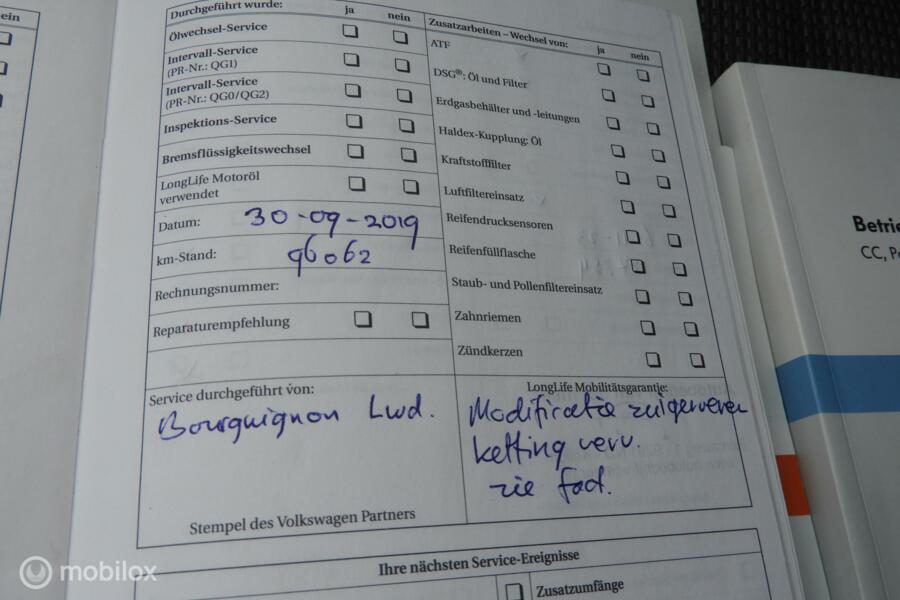 ein
Durchgeführt wurde: ja nein
Ölwechsel-Service
Intervall-Service
(PR-Nr.: QG1)
Intervall-Service
(PR-Nr.: QG0/QG2)
Inspektions-Service
Bremsflüssigkeitswechsel
LongLife Motoröl
verwendet
Datum: 30-09-2019
km-Stand: 96062
Rechnungsnummer:
Reparaturempfehlung
Zusatzarbeiten – Wechsel von: ja nein
ATF
DSG®: Öl und Filter
Erdgasbehälter und -leitungen
Haldex-Kupplung: Öl
Kraftstofffilter
Luftfiltereinsatz
Reifendrucksensoren
Reifenfüllflasche
Staub- und Pollenfiltereinsatz
Zahnriemen
Zündkerzen
Service durchgeführt von:
Bourguignon Lwd.
Stempel des Volkswagen Partners
LongLife Mobilitätsgarantie:
Modificatie zuigerveren
ketting verv.
zie fact.
Ihre nächsten Service-Ereignisse
Zusatzumfänge
Betrie
CC, Pa
mobilox